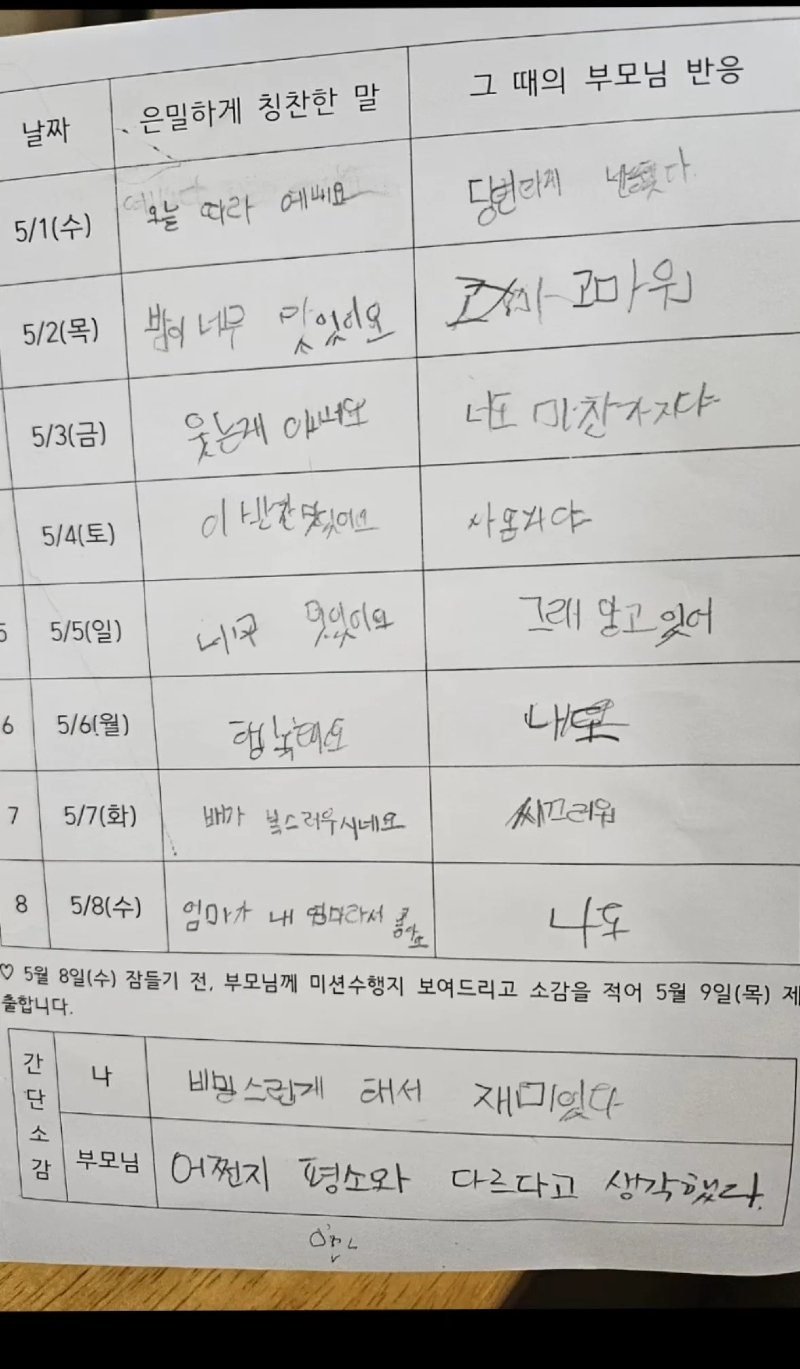 날짜 은밀하게 칭찬한 말 그 때의 부모님 반응
5/1(수) 오늘 따라 예뻐요 당번라게
5/2(목) 밥이 너무 맛있이요 고마워
5/3(금) 웃는게 너도 마찬가지야
5/4(토) 이 반찬 맛있어요
5 5/5(일) 너무 멋있이요 그래 알고 있어
6 5/6(월) 내도
7 5/7(화) 배가 복스러우시네요 씨끄러워
8 5/8(수) 엄마가 내 엄마라서 좋아요 나도
♡ 5월 8일(수) 잠들기 전, 부모님께 미션수행지 보여드리고 소감을 적어 5월 9일(목) 제
출합니다.
간단소감 나 비밍스린게 태서 재미있다
부모님 어쩐지 평소와 다르다고 생각했다.